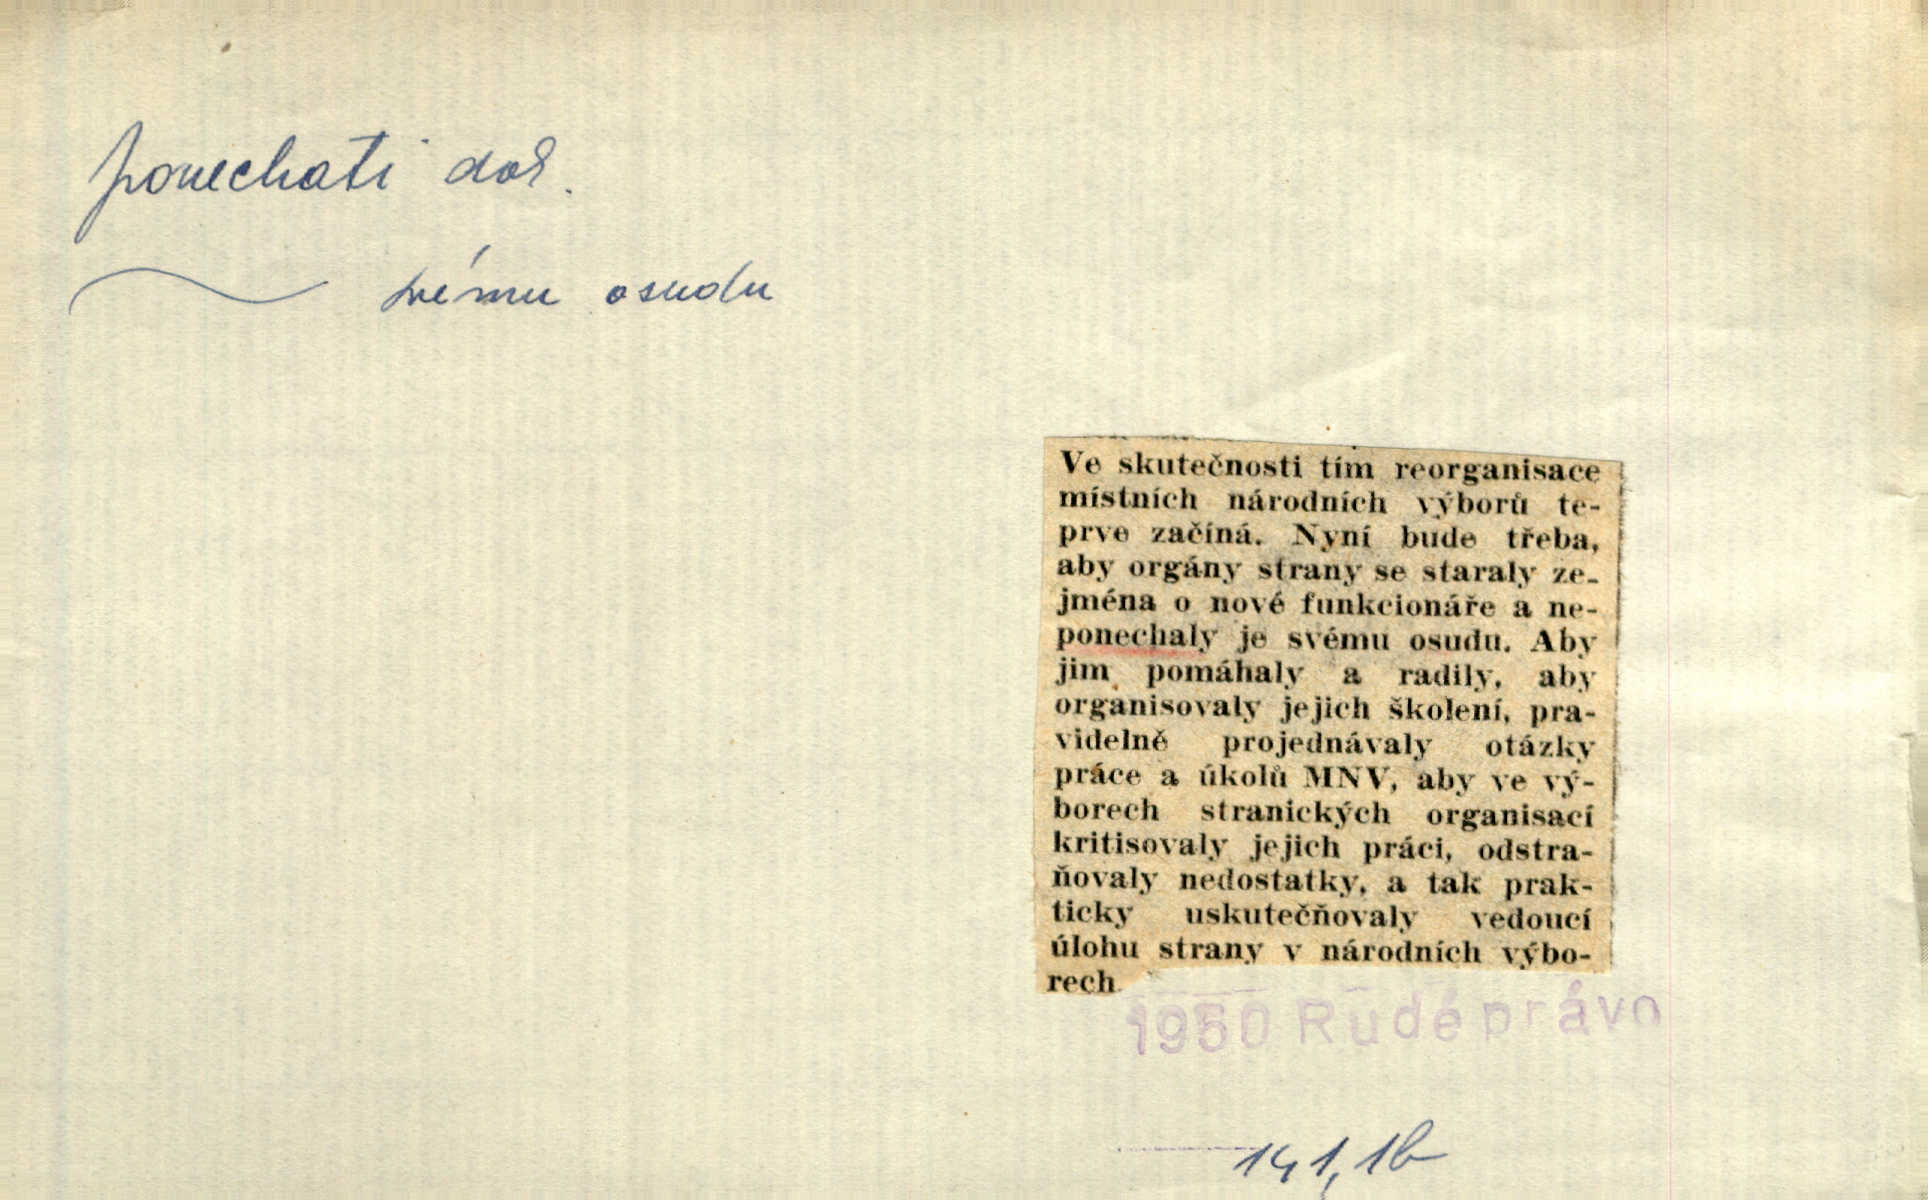 ponechati dok.
svému osudu
Ve skutečnosti tím reorganisace
místních národních výborů te-
prve začíná. Nyní bude třeba,
aby orgány strany se staraly ze-
jména o nové funkcionáře a ne-
ponechaly je svému osudu. Aby
jim pomáhaly a radily, aby
organisovaly jejich školení, pra-
videlně projednávaly otázky
práce a úkolů MNV, aby ve vý-
borech stranických organisací
kritisovaly jejich práci, odstra-
ňovaly nedostatky, a tak prak-
ticky uskutečňovaly vedoucí
úlohu strany v národních výbo-
rech
1950 Rudé právo
141, 1b